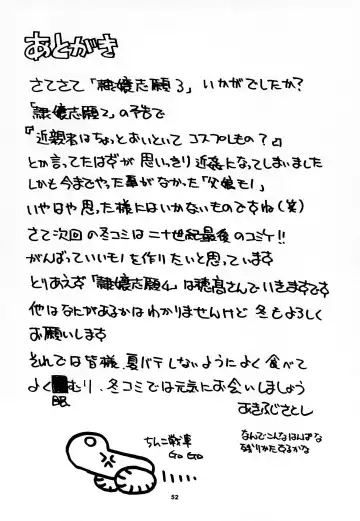 あとがき
さてさて「離嬢志願3」いかがでしたか?
「離嬢志願2」の予告で
『近親名はちょっとおいといて コスプレもの?』
とか言ってたはずが思いっきり近親になってしまいました
しかも今までやった事がなかった「父娘モノ」
いやはや思った様にはいかないものですね(笑)
さて次回の冬コミは二十世紀最後のコミケ!!
がんばっていいモノを作りたいと思っています
とりあえず「離嬢志願4」は穂高さんでいきますです
他はなにがあるかはわかりませんけど 冬もよろしく
お願いします
それでは皆様、夏バテしないようによく食べて
よく眠むり、冬コミでは元気にお会いしましょう
あきふじさとし
ちんこ戦車
GoGo
なんでこんなはんぱな
残りかたするかな
52